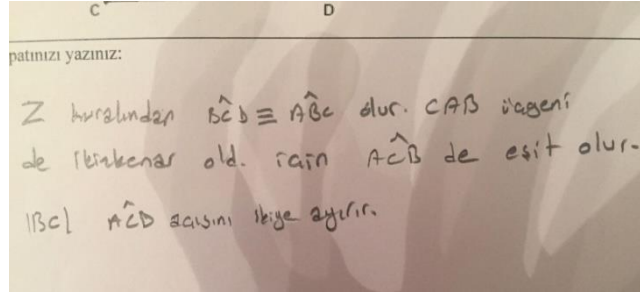 C D
patınızı yazınız:
Z kuralından BĈD ≡ AB̂C olur. CAB üçgeni
de ikizkenar old. için AĈB de eşit olur.
|BC| AĈD açısını ikiye ayırır.